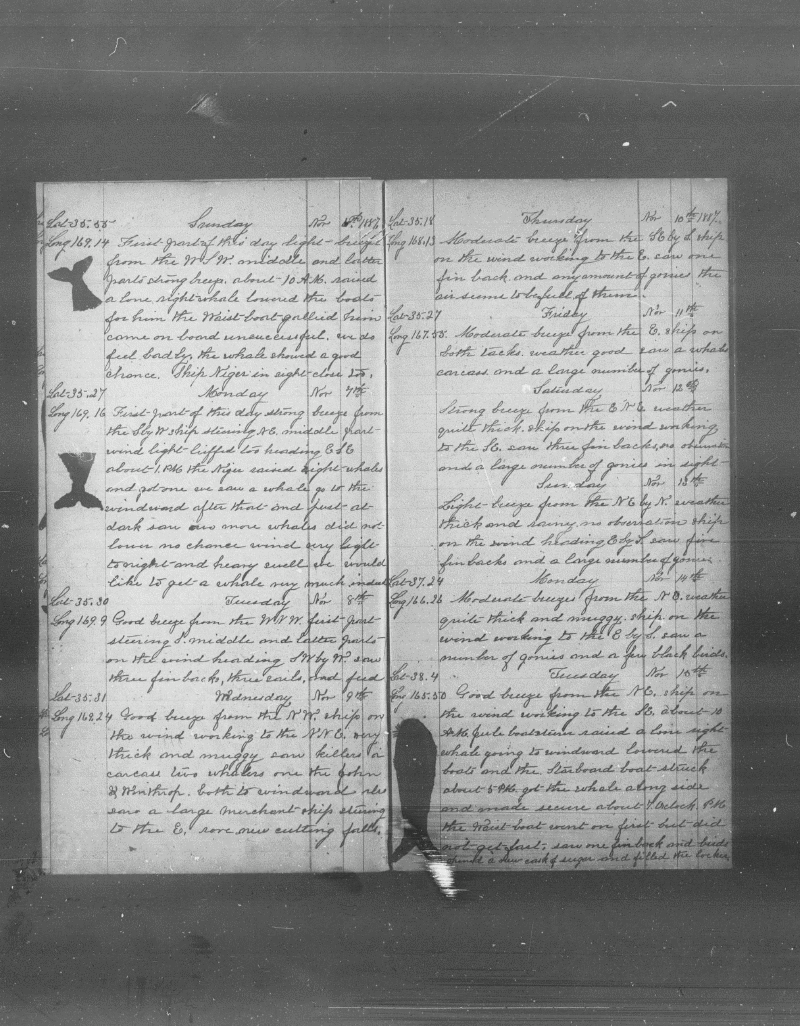 Lat 35.55 Sunday Nov 6th 1887
Long 169.14 First part of this day light breeze
from the W.S.W. middle and latter
parts strong breeze. about 10 A.M. raised
a lone right whale lowered the boats
for him the Waist boat gallied him
came on board unsuccessful. we do
feel badly, the whale showed a good
chance. Ship Niger in sight close too.
Lat 35.27 Monday Nov 7th
Long 169.16 First part of this day strong breeze from
the S by W ship steering N.E. middle part
wind light luffed too heading E.S.E
about 1. P.M. the Niger raised right whales
and got one we saw a whale go to the
windward after that and just at
dark saw two more whales did not
lower no chance wind very light
to night and heavy swell we would
like to get a whale very much indeed
Lat 35.30 Tuesday Nov 8th
Long 169.9 Good breeze from the W.N.W. first part
steering S. middle and latter parts
on the wind heading S.W by W. saw
three fin backs, three sails, and feed
Lat 35.31 Wednesday Nov 9th
Long 168.24 Good breeze from the N.W. ship on
the wind working to the N.N.E. very
thick and muggy saw killers a
carcass two whalers one the John
& Winthrop. both to windward also
saw a large merchant ship steering
to the E. rove new cutting falls.
Lat 35.18 Thursday Nov 10th 1887.
Long 168.13 Moderate breeze from the S.E by S. ship
on the wind working to the E. saw one
fin back. and any amount of gonies the
air seems to be full of them.
Lat 35.27 Friday Nov 11th
Long 167.55 Moderate breeze from the E. ship on
both tacks. weather good saw a whales
carcass and a large number of gonies.
Saturday Nov 12th
Strong breeze from the E.N.E. weather
quite thick. ship on the wind working
to the S.E. saw three fin backs, no observation
and a large number of gonies in sight
Sunday Nov 13th
Light breeze from the N.E by N. weather
thick and rainy, no observation ship
on the wind heading E by S. saw five
fin backs and a large number of gonies
Lat 37.24 Monday Nov 14th
Long 166.26 Moderate breezes from the N.E. weather
quite thick and muggy. ship on the
wind working to the E by S. saw a
number of gonies and a few black birds.
Lat 38.4 Tuesday Nov 15th
Long 165.50 Good breeze from the N.E. ship on
the wind working to the S.E. about 10
A.M. boatsteerer raised a lone right
whale going to windward lowered the
boats and the Starboard boat struck
about 5 P.M. got the whale along side
and made secure about 7. Oclock. P.M.
the Waist boat went on first but did
not get fast. saw one fin back and birds
a new cask of sugar and filled the locker